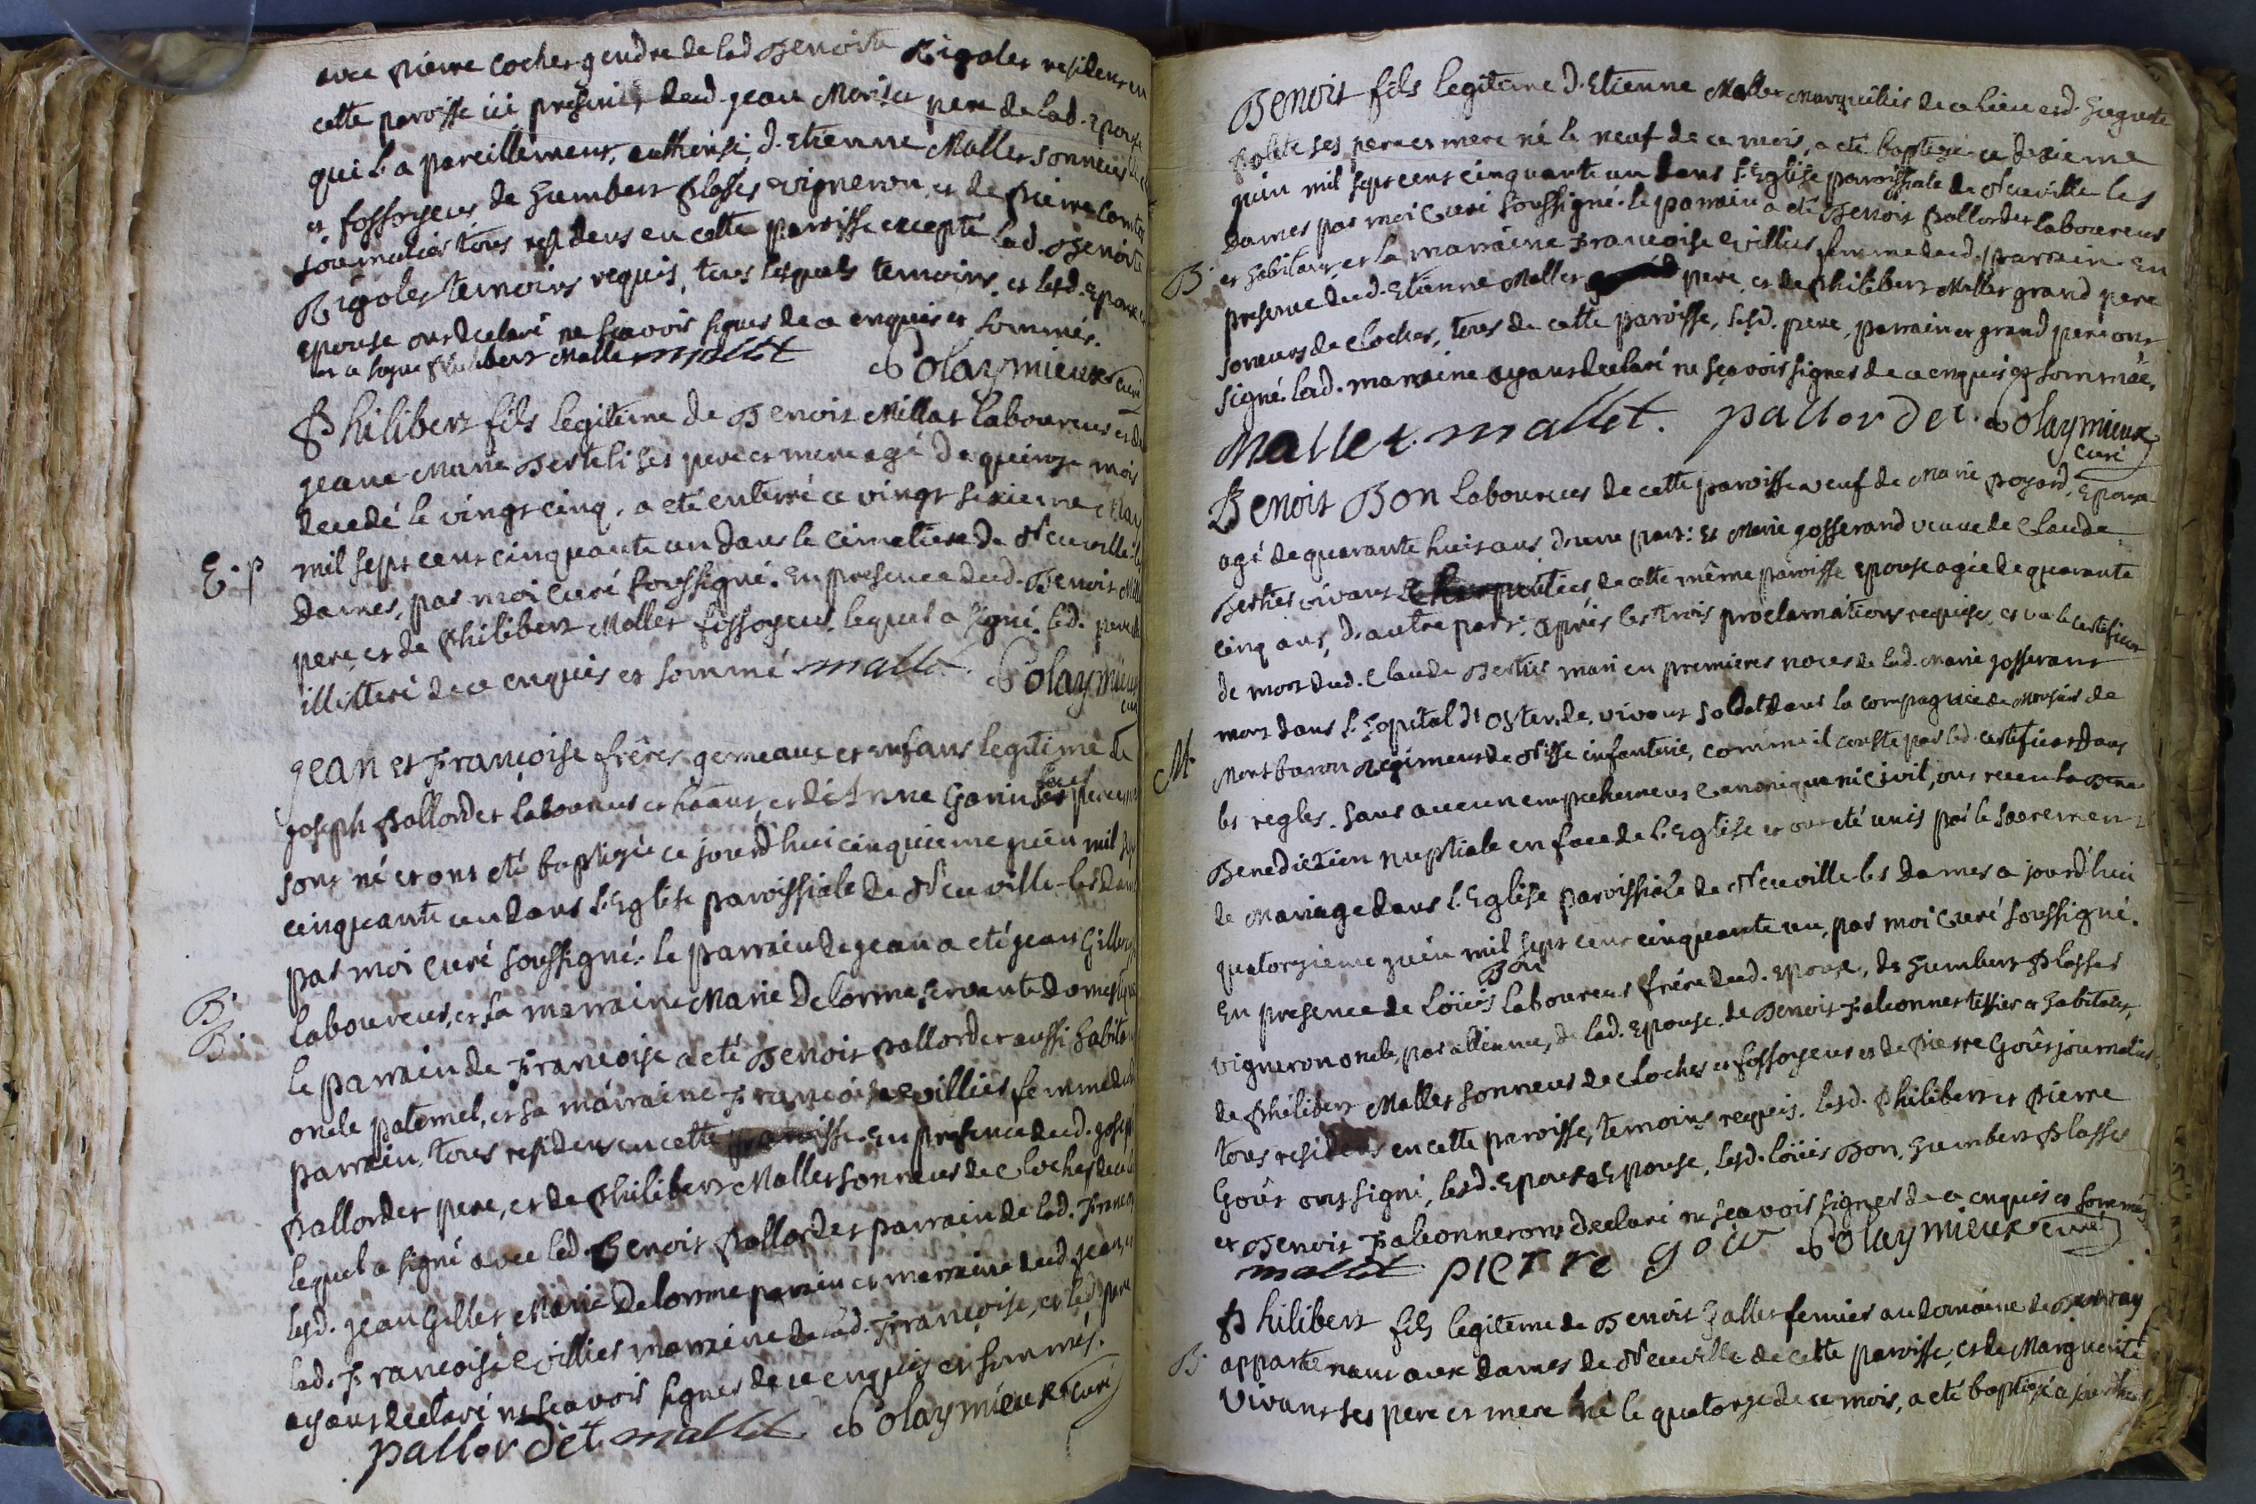 avec pierre cocher gendre de lad. Benoite Rigolet residens en
cette paroisse ici presens, dud. jean Morisat pere de lad. Epouse
qui l'a pareillement authorisé, d. Etienne Mallet sonneur de
et fossoyeur de humbert plasses vigneron et de pierre
journalier tous residens en cette paroisse excepté lad. Benoite
Rigolet temoins requis, tous lesquels temoins, et lesd. Epoux et
Epouse ont declaré ne sçavoir signer de ce enquis et sommés.
et a signé philibert Mallet mallet Polaymieux curé
Philibert fils legitime de Benoit Millat laboureur et de
jeane Marie ses pere et mere agé de quinze mois
decedé le vingt cinq, a eté enterré ce vingt sixieme May
mil sept cent cinquante un dans le cimetiere de Neuville les
E. p
dames, par moi Curé soussigné. En presence dud. Benoit
pere, et de philibert Mallet fossoyeur, lequel a signé. led. pere
illitteré de ce enquis et sommé mallet Polaymieux
curé
Jean et Françoise frères gemeaux et enfans legitime de
joseph pallordet laboureur et et d'Anne Garin ses pere et mere
sont né et ont eté baptisée ce jourd'hui cinquieme juin mil sept
cinquante un dans l'Eglise paroissiale de Neuville-les dames
par moi Curé soussigné. le parrain de jean a eté jean Gillet
B. B.
laboureur, et la marraine Marie Delorme servante domestique
le parrain de Françoise a eté Benoit pallordet aussi habitant
oncle paternel, et sa marraine Françoise evillier femme dud.
parrain, tous residens en cette paroisse. En presence dud. joseph
pallordet pere, et de philibert Mallet sonneur de cloches de ce
lequel a signé avec led. Benoit pallordet parrain de lad. Françoise
lesd. jean Gillet Marie Delorme parrain et marraine dud. jean
lad. Françoise evillier marraine de lad. Françoise, et led. pere
ayant declaré ne sçavoir signer de ce enquis et sommés.
pallordet mallet Polaymieux curé
Benoit fils legitime d. Etienne Mallet Marguillier de ce lieu et d. huguette
polite ses pere et mere né le neuf de ce mois, a eté baptizé ce dixieme
juin mil sept cent cinquante un dans l'Eglise paroissiale de Neuville les
Dames par moi Curé soussigné. le parrain a eté Benoit pallordet laboureur
B.
et habitant, et la marraine Françoise evillier femme dud. parrain. En
presence dud. Etienne Mallet pere, et de philibert Mallet grand pere
soneurs de cloches, tous de cette paroisse, lesd. pere, parrain et grand pere ont
signé. lad. marraine ayant declaré ne sçavoir signer de ce enquis et sommée.
Mallet. mallet. pallordet. Polaymieux
curé
Benoit Bon laboureur de cette paroisse veuf de Marie poyard, Epoux
agé de quarante huit ans d'une part: Et Marie josserand veuve de Claude
Bertier vivant de cette même paroisse epouse agée de quarante
cinq ans, d'autre part; après les trois proclamations requises, et vu le certificat
de mort dud. Claude Bertier mari en premieres noces de lad. Marie josserant
mort dans l'hopital d'Ostende, vivant soldat dans la compagnie de Monsieur de
M.
Montbaron Regiment de Nisse infanterie, comme il conste par led. certificat dans
les regles, sans aucun empechement Canonique ni Civil, ont receu la
Benediction nuptiale en face de l'Eglise et ont eté unis par le sacrement
de Mariage dans l'Eglise paroissiale de Neuville les dames a jourd'hui
quatorzieme juin mil sept cent cinquante un, par moi Curé soussigné.
En presence de Loüis Bon laboureur frère dud. epoux, de humbert plasses
vigneron oncle, par alliance, de lad. Epouse, de Benoit Falconnet tissier et habitant,
de philibert Mallet sonneur de cloches et fossoyeur et de pierre Goût journalier
tous residens en cette paroisse, temoins requis. lesd. philibert et pierre
Goût ont signé, lesd. Epoux et Epouse, lesd. loüis Bon, humbert plasses
et Benoit Falconnet ont declaré ne sçavoir signer de ce enquis et sommés
mallet pierre gout Polaymieux curé
Philibert fils legitime de Benoit hallet fermier au domaine de
B.
appartenant aux dames de Neuville de cette paroisse, et de Marguerite
Vivant ses pere et mere né le quatorze de ce mois, a eté baptisé